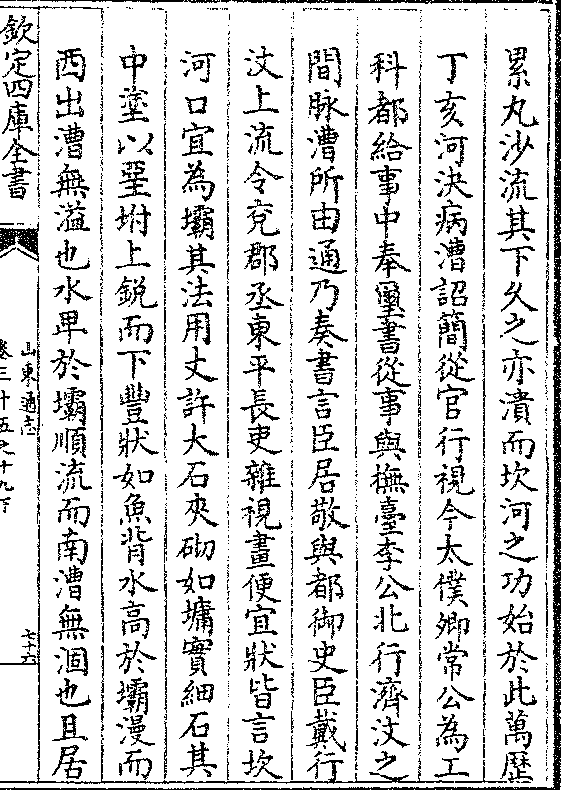 累丸沙流其下久之亦潰而坎河之功始於此萬歴
丁亥河決病漕詔簡從官行視今太僕卿常公為工
科都給事中奉璽書從事與撫臺李公北行濟汶之
間脉漕所由通乃奏書言臣居敬與都御史臣戴行
汶上流令兖郡丞東平長吏雜視畫便宜狀皆言坎
河口宜為壩其法用丈許大石夾砌如墉實細石其
中塗以堊坿上鋭而下豐狀如魚背水高於壩漫而
西出漕無溢也水卑於壩順流而南漕無涸也且居
欽定四庫全書
山東通志
卷三十五之十九下
七十六